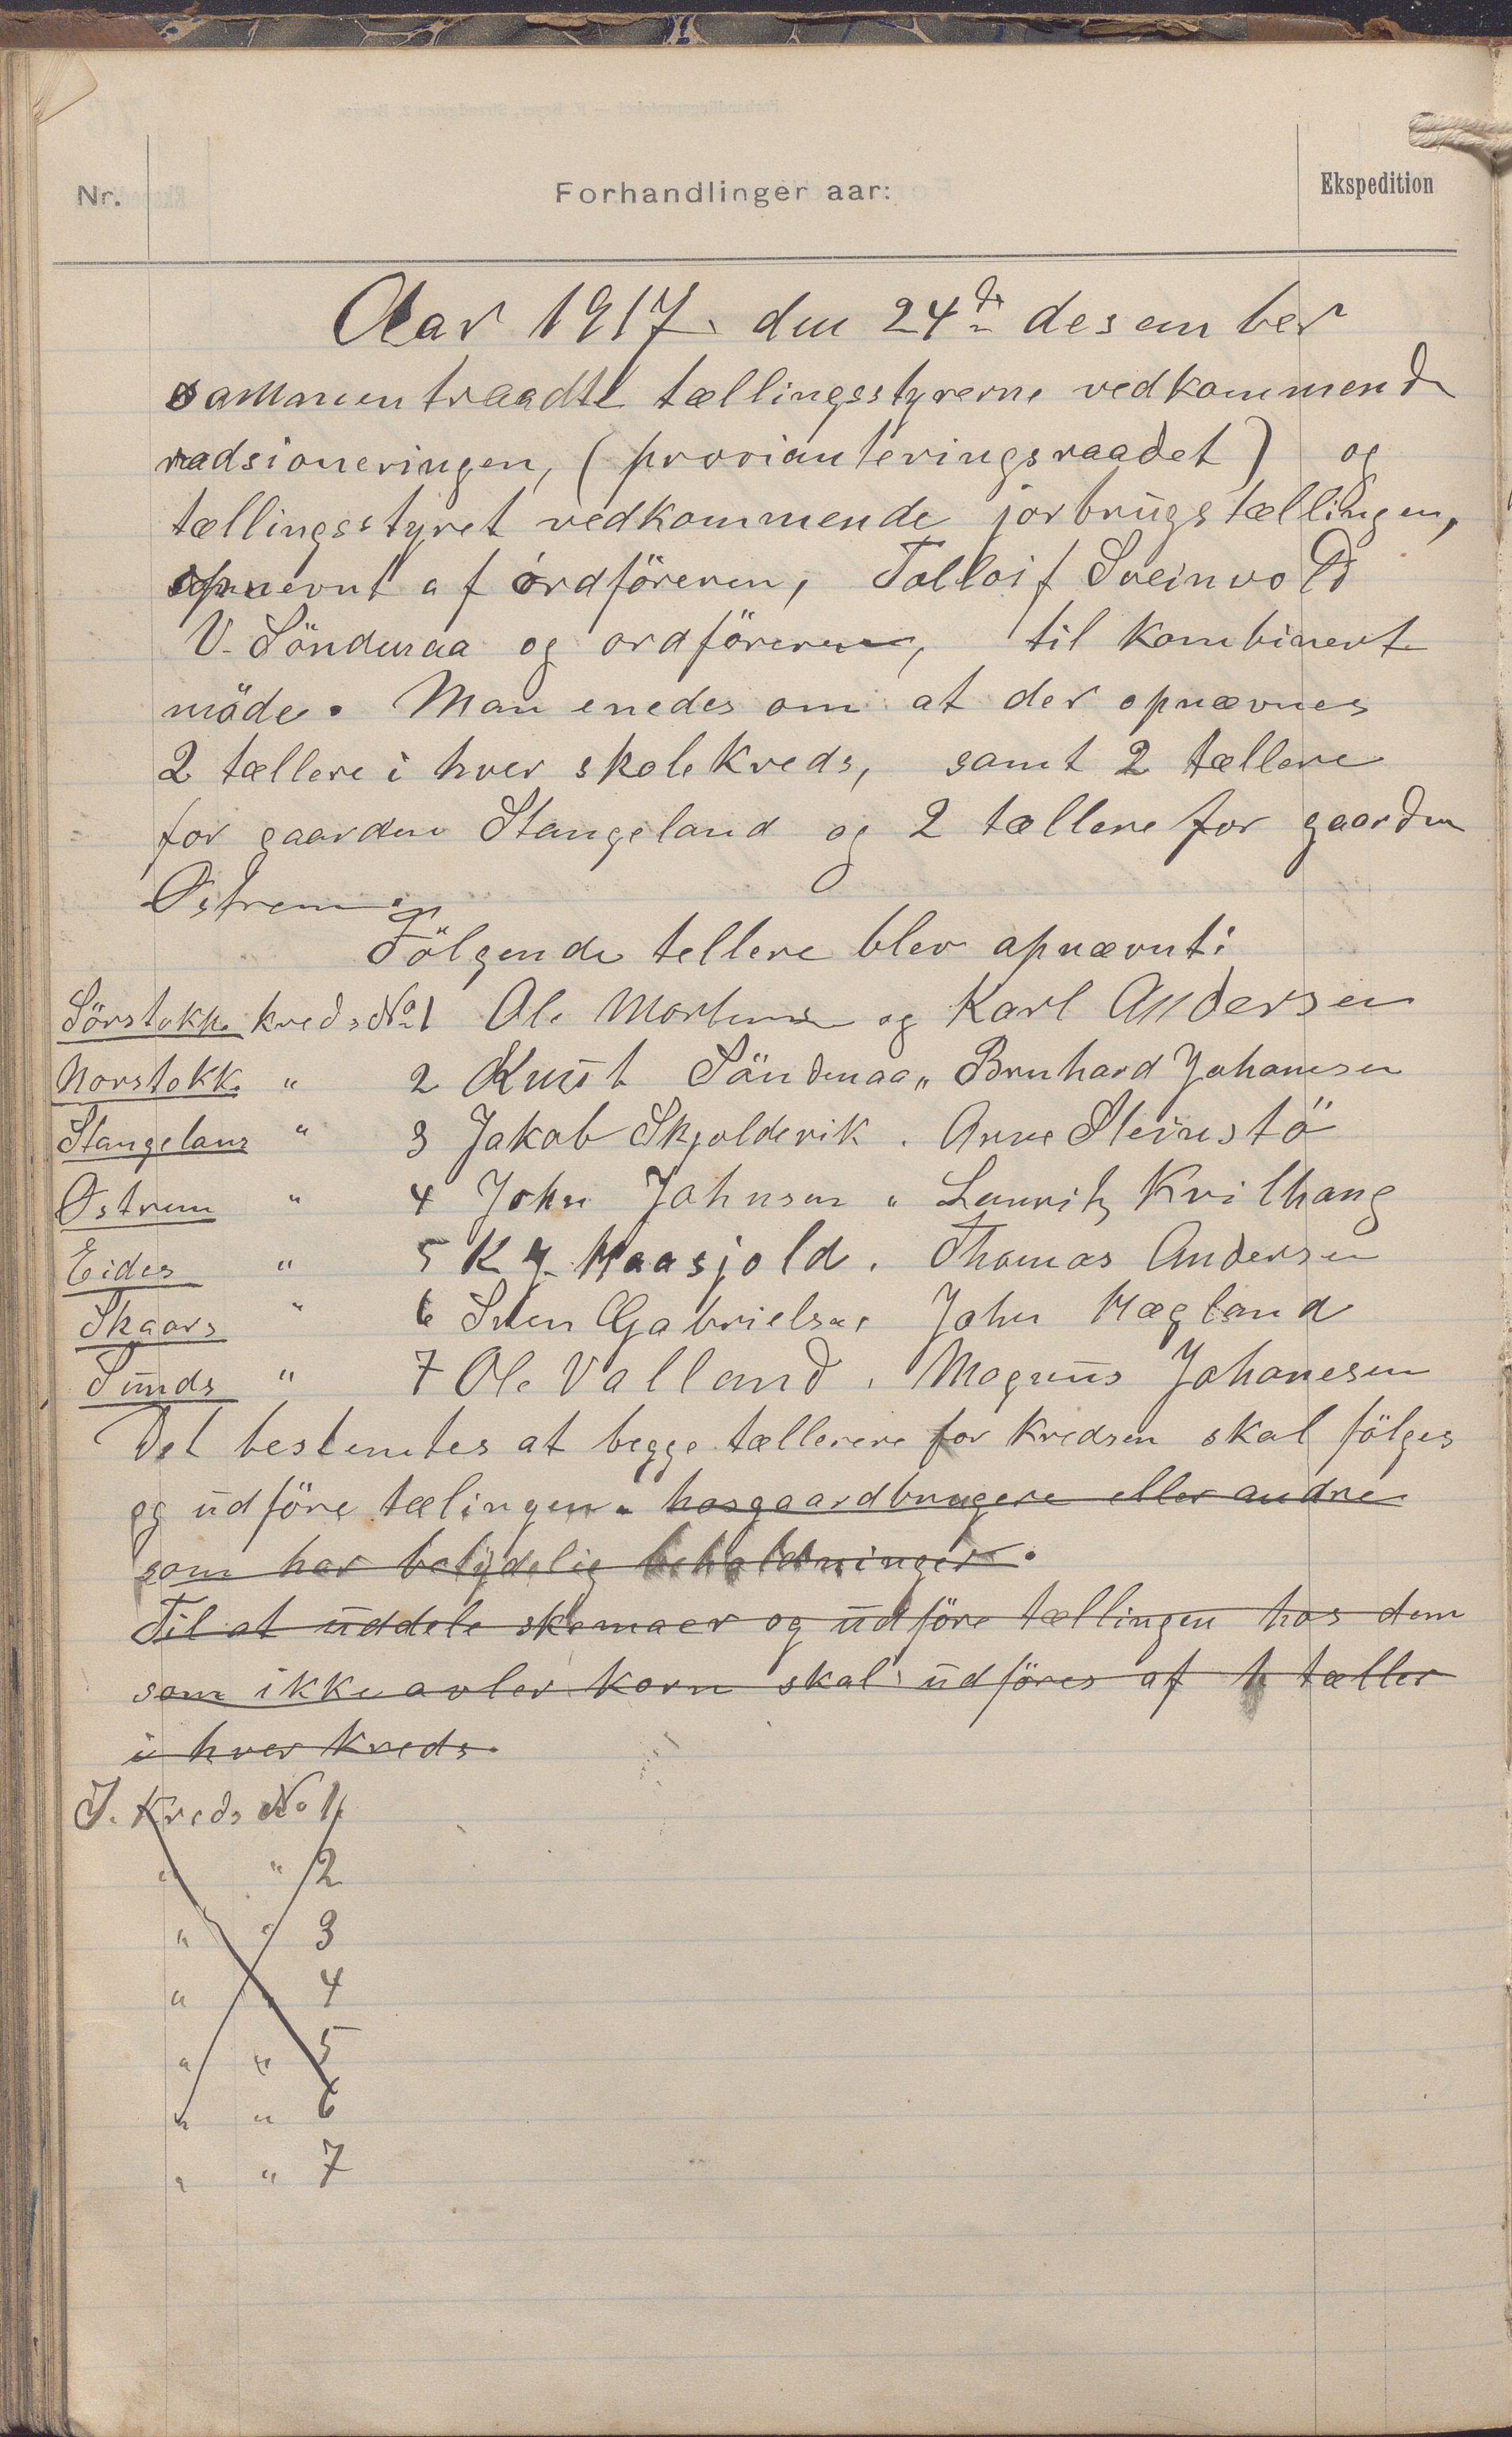 Nr.
Forhandlinger aar:
Ekspedition
Aar 1917. den 24de desember
sammentraadte tællingsstyrerne vedkommende
radsioneringen, (provianteringsraadet) og
tællingsstyret vedkommende jorbrugstællingen,
opnevnt af ordföreren, Tolloif Sveinvold
V. Söndenaa og ordföreren, til kombinert
möde. Man enedes om at der opnævnes
2 tællere i hver skolekreds, samt 2 tællere
for gaarden Stangeland og 2 tællere for gaarden
Østrem.
Fölgende tellere blev opnævnt:
Sörstokke kreds No 1 Ole Mortensen og Karl Andersen
Norstokke " 2 Knut Söndenaa " Bernhard Johanesen
Stangeland " 3 Jakob Skjoldevik . Arne Steinstö
Østrem " 4 John Johnsen " Lauritz Kvilhaug
Eides " 5 K J. Haasjold . Thomas Andersen
Skaars " 6 Sven Gabrielsen John Hægland
Sunds " 7 Ole Valland . Magnus Johanesen
Det bestemtes at begge tællerere for kredsen skal fölges
og udföre tælingen. hosgaardbrugere eller andre
som har betydelig beholdninger.
Til at uddele skemaer og udföre tællingen hos dem
som ikke avler korn skal udföres af 1 tæller
i hver kreds.
I. Kreds No 1
" " 2
" " 3
" " 4
" " 5
" " 6
" " 7